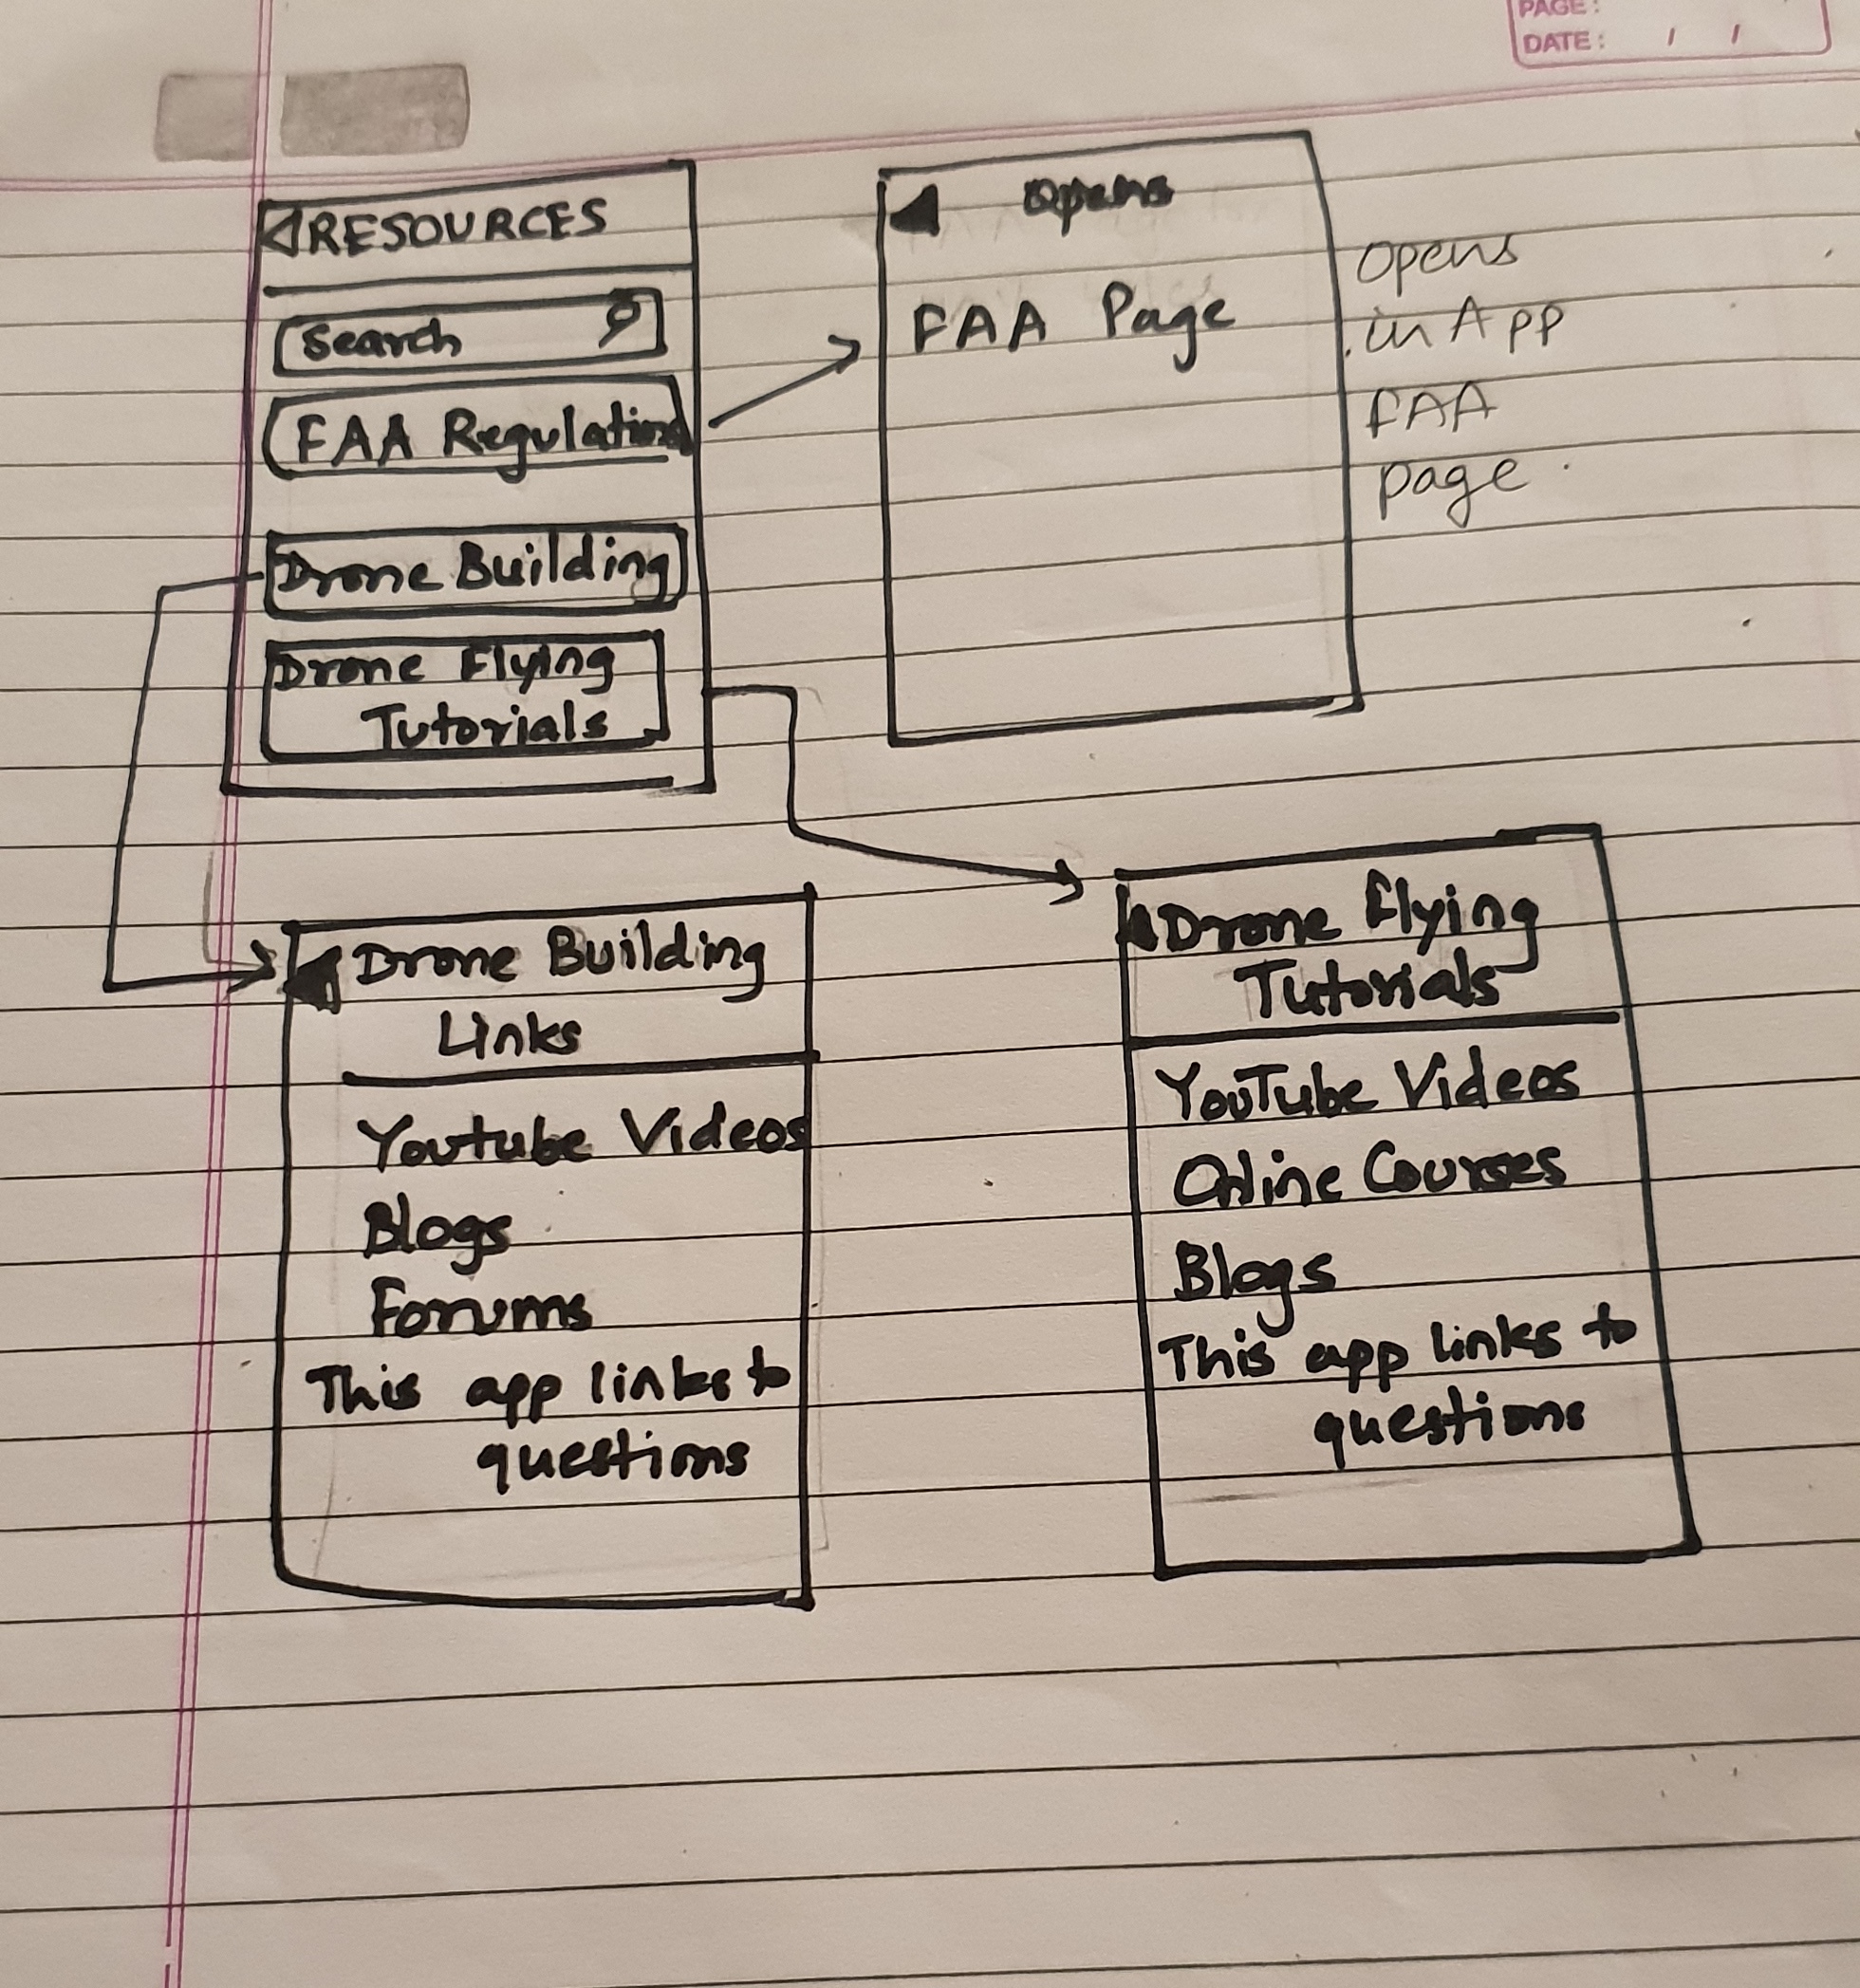 PAGE:
DATE: / /
RESOURCES
Search
FAA Regulation
Drone Building
Drone Flying
Tutorials
Opens
FAA Page
opens
in App
FAA
page.
Drone Building
Links
Youtube Videos
Blogs
Forums
This app links to
questions
Drone Flying
Tutorials
YouTube Videos
Online Courses
Blogs
This app links to
questions